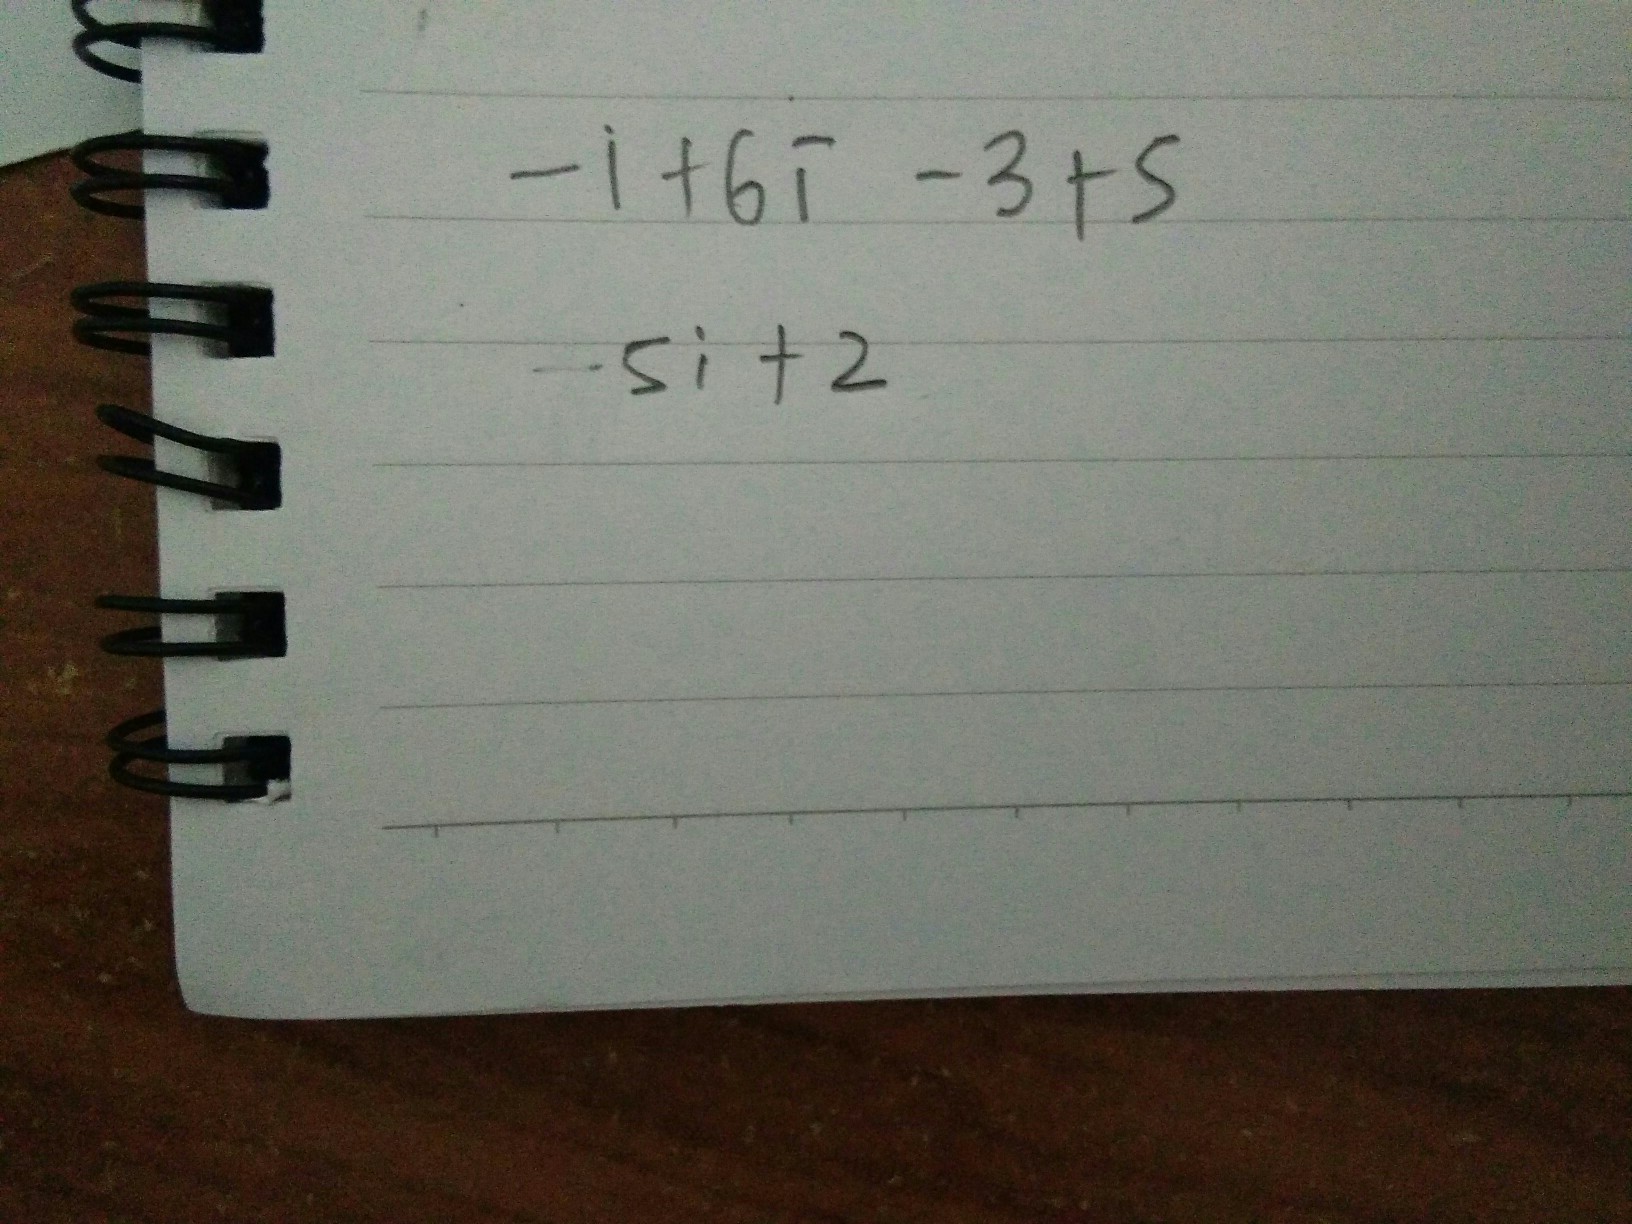 -i+6i -3+5
-5i+2